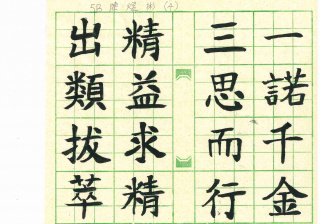 5B 陳煜彬 (4)
一諾千金
三思而行
精益求精
出類拔萃